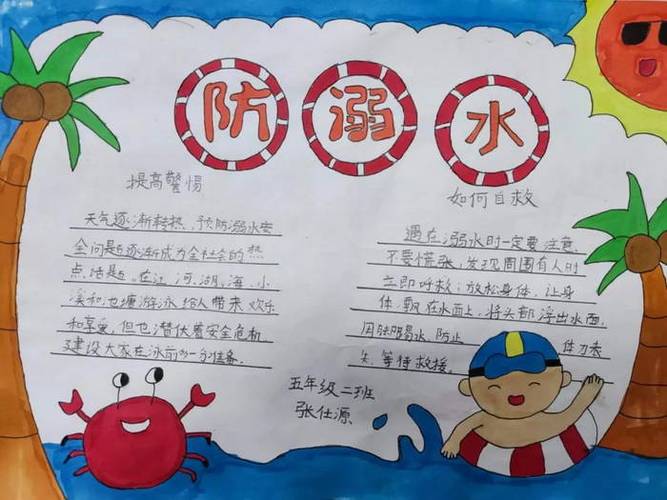 防溺水
提高警惕
天气逐渐转热，预防溺水安
全问题逐渐成为全社会的热
点话题。在江、河、湖、海、小
溪和池塘游泳给人带来欢乐
和享受，但也潜伏着安全危机
建设大家在泳前多一分准备。
如何自救
遇在溺水时一定要注意，
不要慌张，发现周围有人时
立即呼救；放松身体，让身
体飘在水面上，将头部浮出水面，
用脚踢水，防止
体力丧
失，等待救援。
五年级二班
张仕源